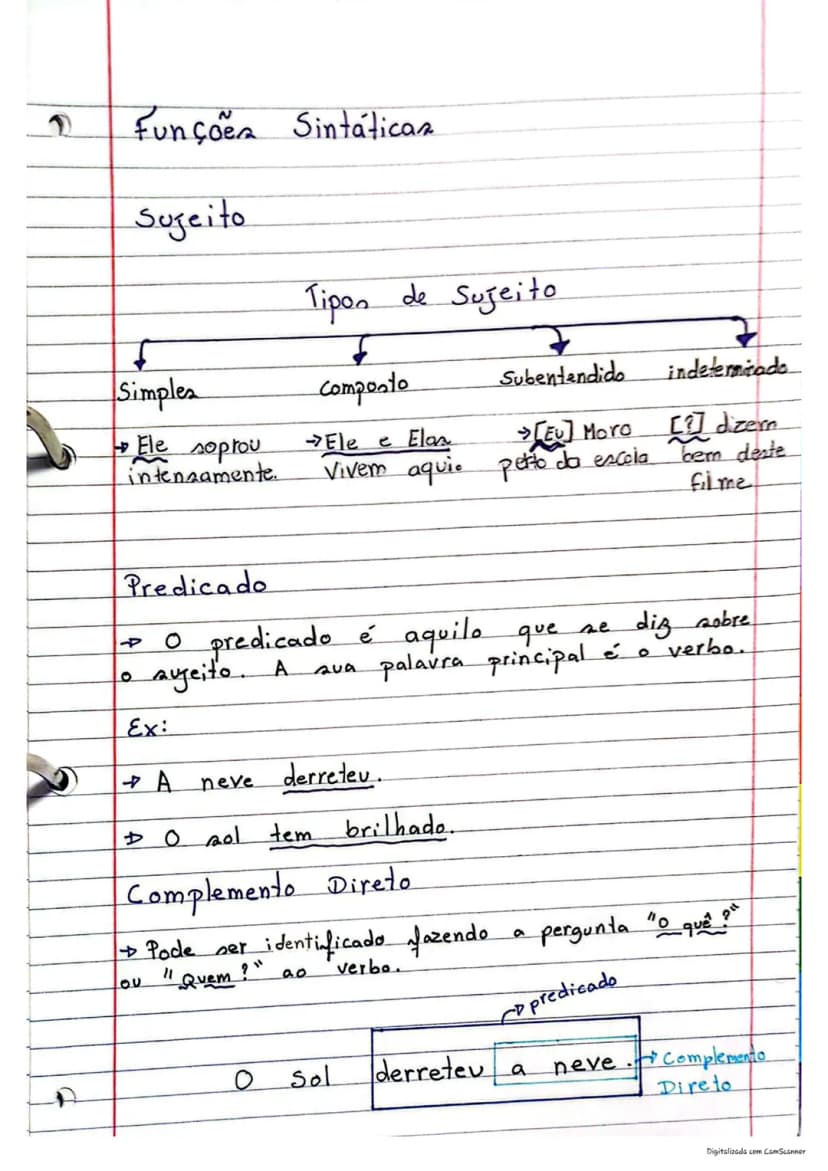 Funções Sintáticas
Sujeito
Tipos de Sujeito
Simples Composto Subentendido indeterminado
→ Ele soprou →Ele e Elas →[Eu] Moro [?] dizem
intensamente. Vivem aqui. perto da escola bem deste
filme
Predicado
→ O predicado é aquilo que se diz sobre
o sujeito. A sua palavra principal é o verbo.
Ex:
→ A neve derreteu.
→ O sol tem brilhado.
Complemento Direto
→ Pode ser identificado fazendo a pergunta "o quê?"
ou "Quem?" ao verbo.
→ predicado
O Sol derreteu a neve. → Complemento
Direto
Digitalizada com CamScanner